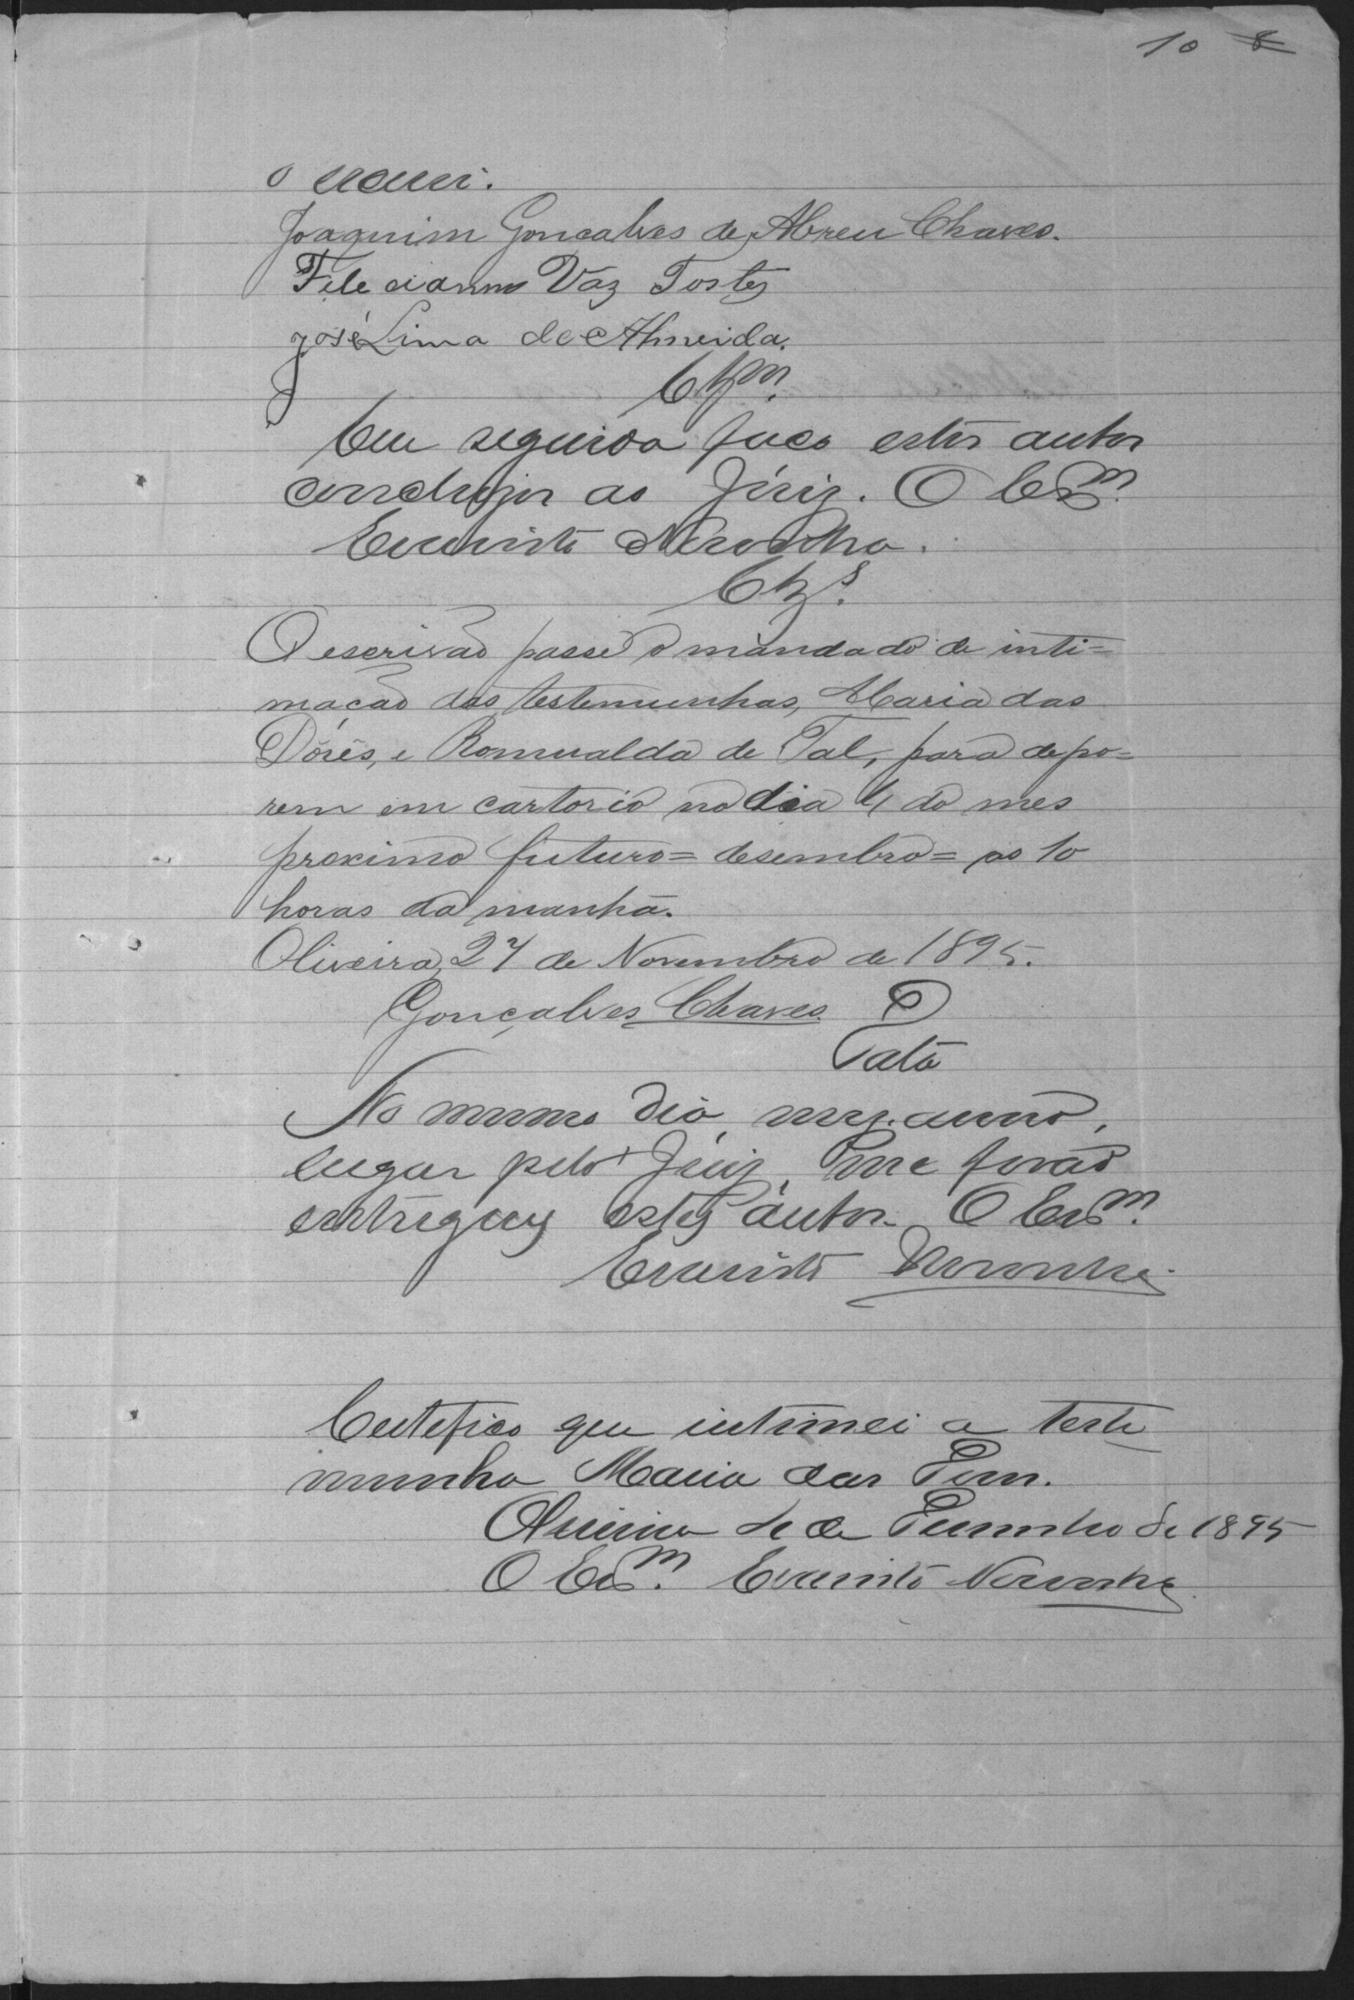 10 8
o escrevi.
Joaquim Gonçalves de Abreu Chaves.
Felecianno Vaz Tostes
José Lima de Almeida.
Clsm.
Em seguida faço estes autos
conclusos ao Juiz. O Escm.
Evaristo Noronha.
Clzs.
O escrivão passe o mandado de inti=
mação das testemunhas, Maria das
Dôres, e Romualda de Tal, para depo=
rem em cartorio no dia 4 do mes
proximo futuro = desembro = as 10
horas da manhã.
Oliveira, 27 de Novembro de 1895.
Gonçalves Chaves
Data
No mesmo dia, mez, anno,
lugar pelo Juiz, me forão
entregues estes autos. O Escm.
Evaristo Noronha
Certefico que intimei a teste
munha Maria das Dores.
Oliveira de Dezembro de 1895
O Escm. Evaristo Noronha